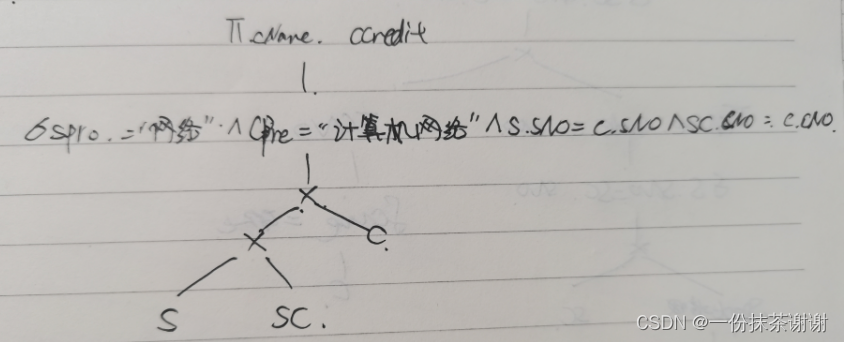 π cName. ccredit
σ Spro. = "网络" ∧ Cpre = "计算机网络" ∧ S.SNO = C.SNO ∧ SC.SNO = C.CNO.
×
× C.
S SC.
CSDN @一份抹茶谢谢